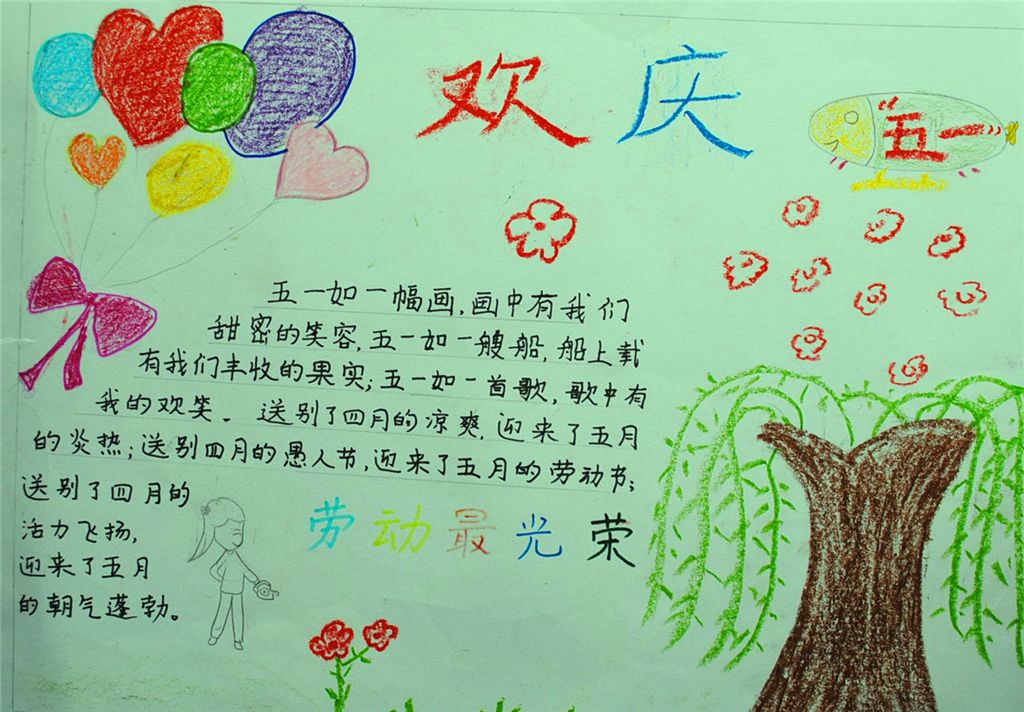 欢庆
“五一”
五一如一幅画,画中有我们
甜密的笑容,五一如一艘船,船上载
有我们丰收的果实;五一如一首歌,歌中有
我的欢笑。送别了四月的凉爽,迎来了五月
的炎热;送别四月的愚人节,迎来了五月的劳动节;
送别了四月的
活力飞扬,
迎来了五月
的朝气蓬勃。
劳动最光荣